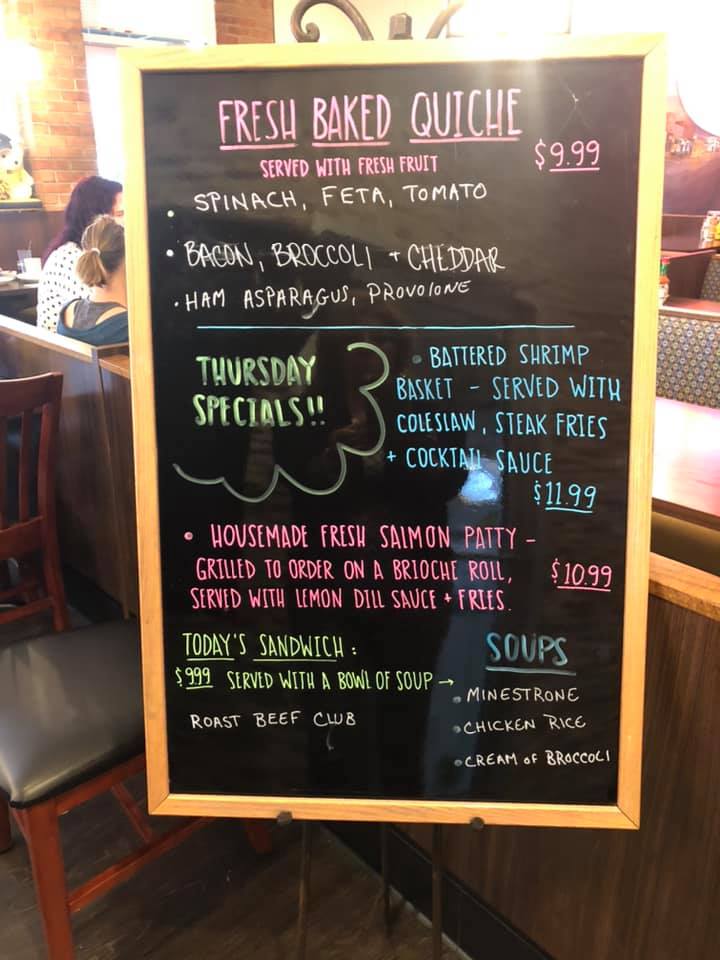 FRESH BAKED QUICHE
SERVED WITH FRESH FRUIT
$9.99
SPINACH, FETA, TOMATO
• BACON, BROCCOLI + CHEDDAR
• HAM ASPARAGUS, PROVOLONE
THURSDAY
SPECIALS!!
• BATTERED SHRIMP
BASKET - SERVED WITH
COLESLAW, STEAK FRIES
+ COCKTAIL SAUCE
$11.99
• HOUSEMADE FRESH SALMON PATTY -
GRILLED TO ORDER ON A BRIOCHE ROLL,
SERVED WITH LEMON DILL SAUCE + FRIES.
$10.99
TODAY'S SANDWICH:
$9.99 SERVED WITH A BOWL OF SOUP →
ROAST BEEF CLUB
SOUPS
• MINESTRONE
• CHICKEN RICE
• CREAM OF BROCCOLI